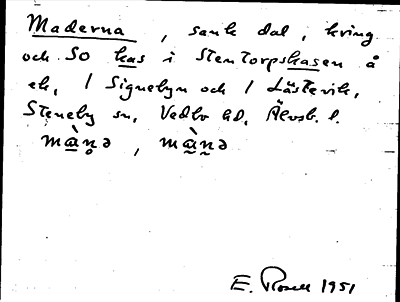 Maderna, sank dal, kring
och SO kas i Stentorpskasen å
ek, 1 Signebyn och 1 Lästevik,
Steneby sn, Vedbo hd, Älvsb. l.
màṇə, màṇə
E. Rosell 1951